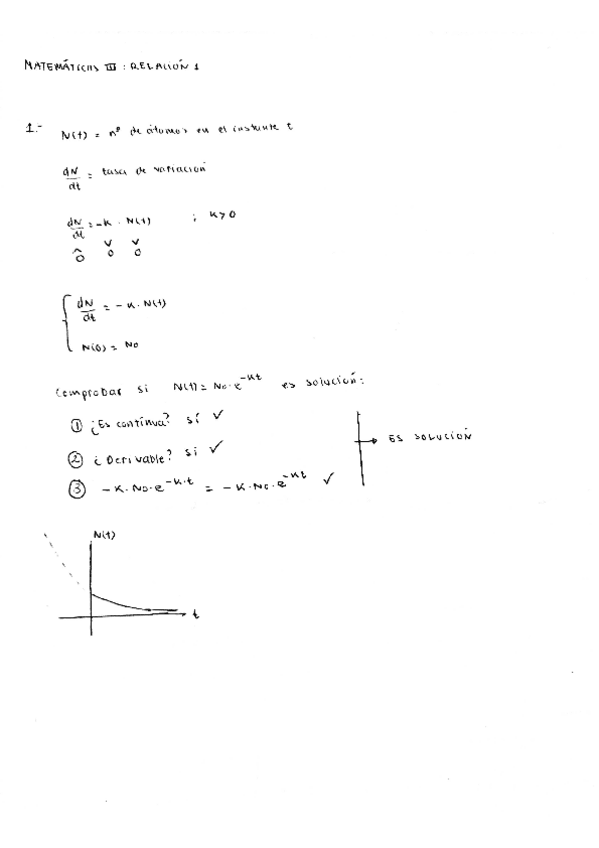 MATEMÁTICAS III : RELACIÓN 1
1.- N(t) = nº de átomos en el instante t
dN/dt = tasa de variación
dN/dt = -K · N(t) ; K>0
^ v v
0 0 0
dN/dt = - K · N(t)
N(0) = N0
Comprobar si N(t) = N0·e^-Kt es solución:
① ¿Es continua? SÍ ✓
② ¿Derivable? SI ✓
→ ES SOLUCIÓN
③ -K·N0·e^-K·t = -K·N0·e^-Kt ✓
N(t)
t